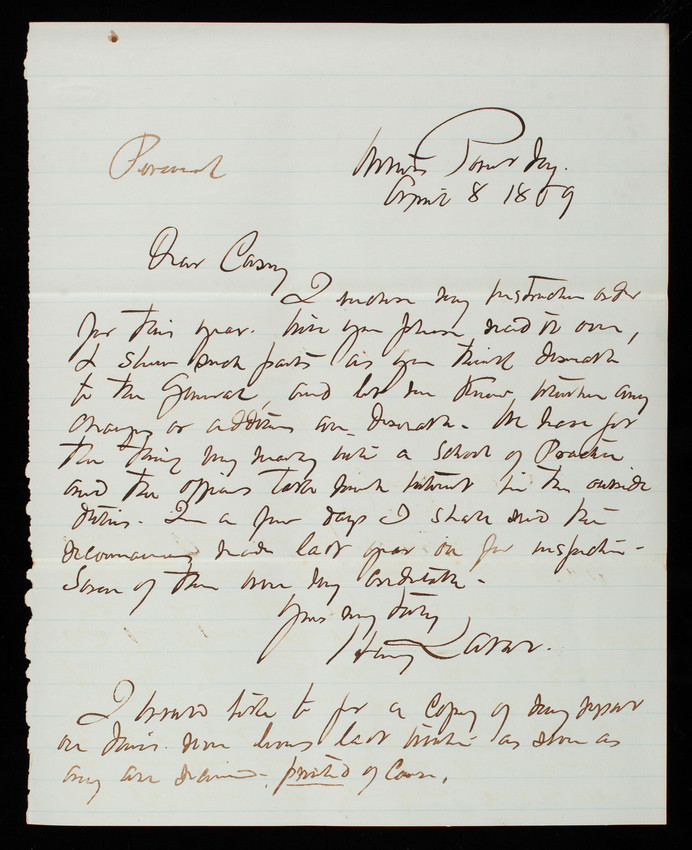 Personal
Willets Point N.Y.
April 8 1869
Dear Casey
I enclose my instruction order
for this year. Will you please read it over,
& show such parts as you think desirable
to the General, and let me know whether any
changes or additions are desirable. We have got
the thing very nearly into a School of Practice
and the officers take much interest in the outside
duties. In a few days I shall send the
made last year on for inspection -
Some of them were very creditable -
Yours very truly
Henry L. Abbot.
I would like to get a copy of my report
on last winter as soon as
any are printed of course.